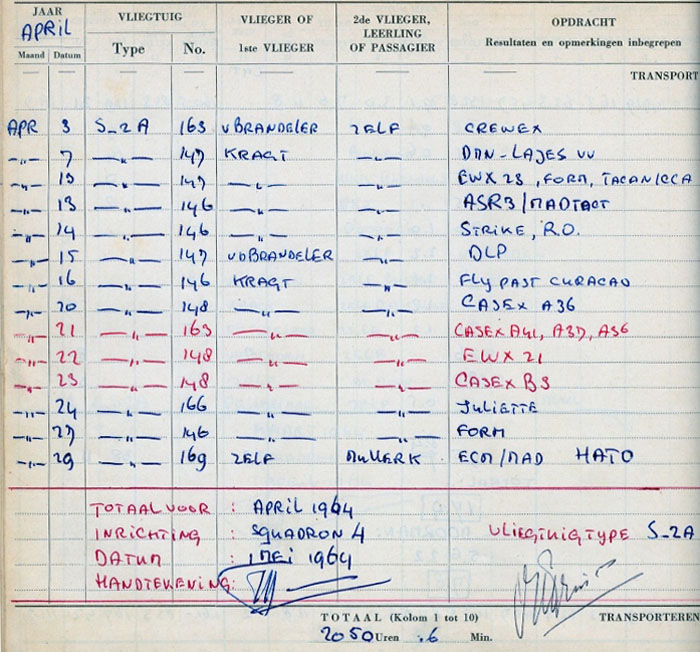 JAAR VLIEGTUIG VLIEGER OF 2de VLIEGER, OPDRACHT
APRIL LEERLING
Maand Datum Type No. 1ste VLIEGER OF PASSAGIER Resultaten en opmerkingen inbegrepen
TRANSPORT
APR 3 S_2A 163 vBRANDELER ZELF CREWEX
—„— 7 —„— 147 KRAGT —„— DNN-LAJES VV
—„— 13 —„— 147 —„— —„— EWX 23, FORM, TACAN/CCA
—„— 13 —„— 146 —„— —„— ASR3/MADTACT
—„— 14 —„— 146 —„— —„— STRIKE, R.O.
—„— 15 —„— 147 vdBRANDELER —„— DLP
—„— 16 —„— 146 KRAGT —„— FLY PAST CURACAO
—„— 20 —„— 148 —„— —„— CASEX A36
—„— 21 —„— 163 —„— —„— CASEX A41, A37, AS6
—„— 22 —„— 148 —„— —„— EWX 21
—„— 23 —„— 148 —„— —„— CASEX B3
—„— 24 —„— 166 —„— —„— JULIETTE
—„— 27 —„— 146 —„— —„— FORM
—„— 29 —„— 169 ZELF ECM/MAD HATO
TOTAAL VOOR : APRIL 1964
INRICHTING : SQUADRON 4 VLIEGTUIGTYPE S_2A
DATUM : 1 MEI 1964
HANDTEKENING:
TOTAAL (Kolom 1 tot 10) TRANSPORTEREN
2050 Uren .6 Min.